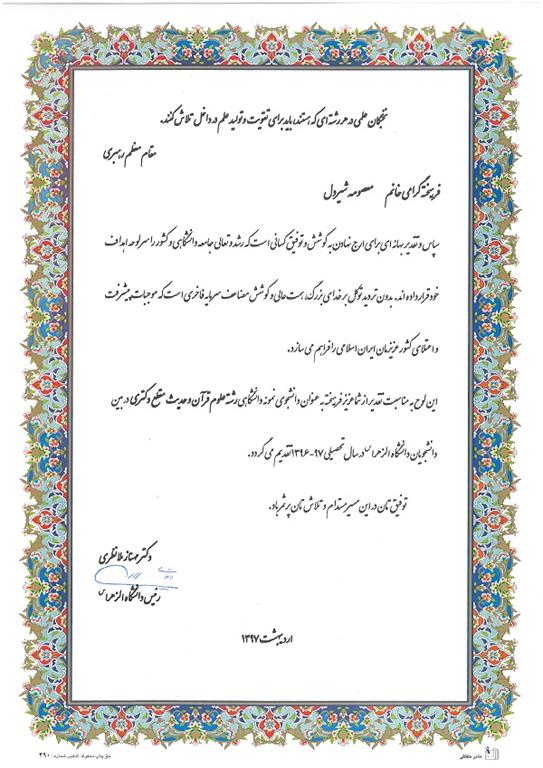 نخبگان علمی در هر رشته‌ای که هستند، باید برای تقویت و تولید علم در داخل تلاش کنند.
مقام معظم رهبری
فرهیخته گرامی خانم معصومه شیردل
سپاس و تقدیر بهانه‌ای برای ارج نهادن به کوشش و توفیق کسانی است که رشد و تعالی جامعه دانشگاهی و کشور را سرلوحه اهداف
خود قرار داده‌اند. بدون تردید توکل بر خدای بزرگ، همت عالی و کوشش مضاعف سرمایه فاخری است که موجبات پیشرفت
و اعتلای کشور عزیزمان ایران اسلامی را فراهم می‌سازد.
این لوح به مناسبت تقدیر از شما عزیز فرهیخته به عنوان دانشجوی نمونه دانشگاهی رشته علوم قرآن و حدیث مقطع دکتری در بین
دانشجویان دانشگاه الزهراء(س) در سال تحصیلی ۹۷-۱۳۹۶ تقدیم می‌گردد.
توفیق‌تان در این مسیر مستدام و تلاش‌تان پرثمر باد.
دکتر مهناز ملانظری
رئیس دانشگاه الزهراء(س)
اردیبهشت ۱۳۹۷
حق چاپ محفوظ، تذهیب شماره: ۳۹۰
نشر حقانی